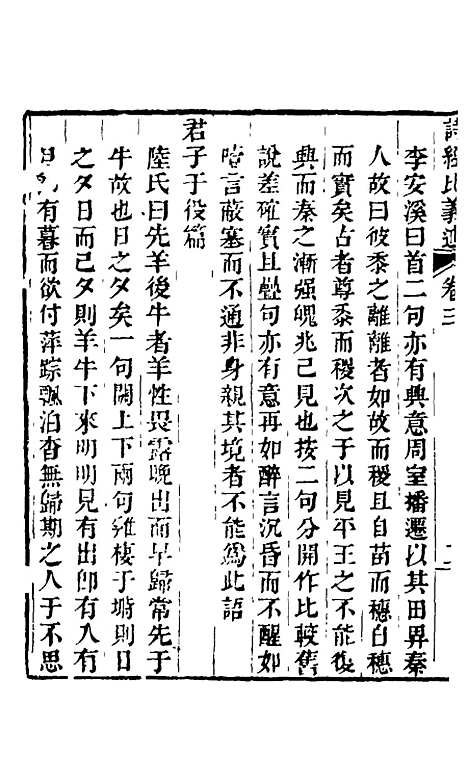 詩經比義述 卷三
李安溪曰首二句亦有興意周室播遷以其田畀秦
人故曰彼黍之離離者如故而稷且自苗而穗自穗
而實矣占者尊黍而稷次之于以見平王之不能復
興而秦之漸强魄兆已見也按二句分開作比較舊
說差確實且疊句亦有意再如醉言沉昏而不醒如
噎言蔽塞而不通非身親其境者不能爲此語
君子于役篇
陸氏曰先羊後牛者羊性畏露晚出而早歸常先于
牛故也日之夕矣一句關上下兩句雞棲于塒則日
之夕日而已夕則羊牛下來明明見有出卽有入有
有暮而欲付萍踪飄泊杳無歸期之人于不思